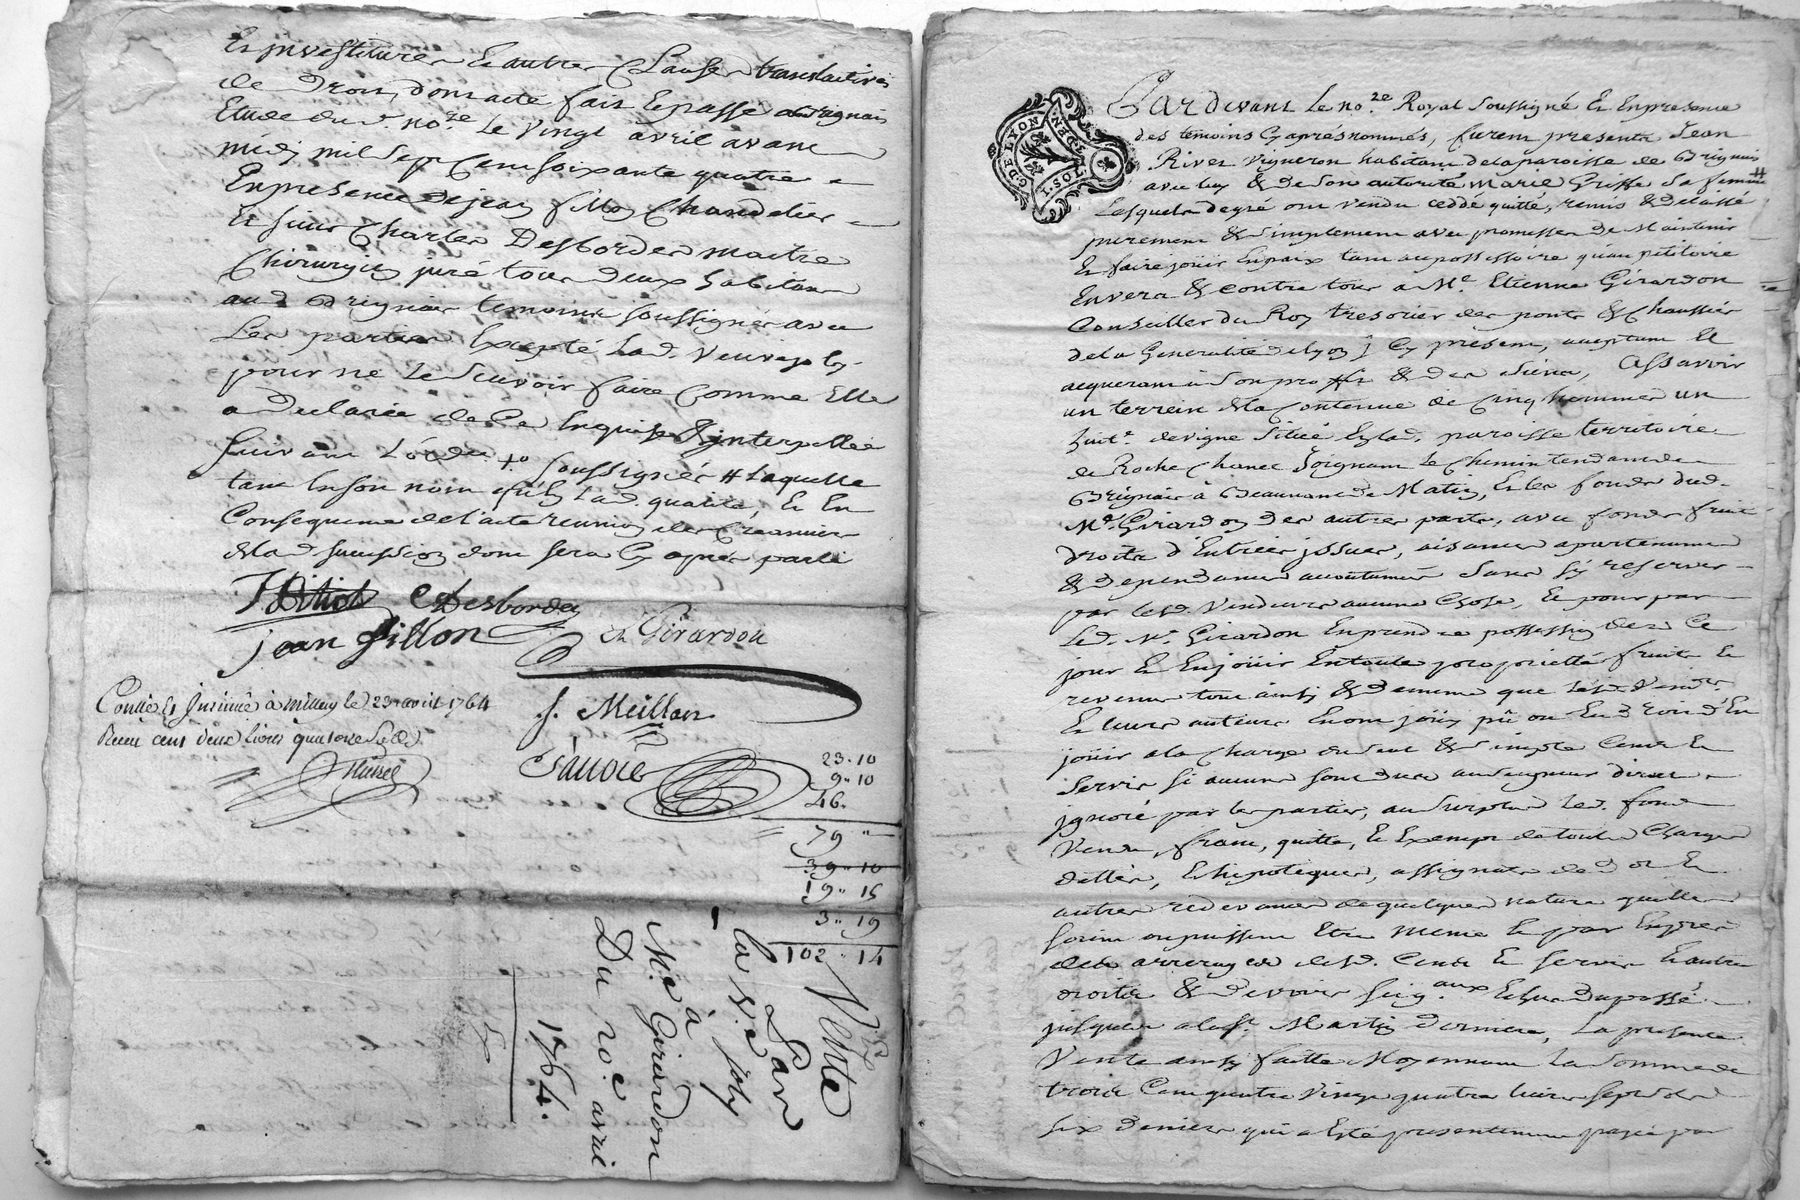 Et investitures et autres clauses translatives
de droit, dont acte fait et passé à Brignais
Etude dud. no.re le vingt avril avant
midy mil sept cent soixante quatre
En presence de jean fillon chandelier
Et sieur Charles Desbordes maitre
Chirurgien juré tous deux habitans
aud. Brignais temoins soussignés avec
Les parties Excepté lad. veuve joly
pour ne le sçavoir faire comme Elle
a declaré de ce Enquise & interpellée
suivant L'ord.ce soussignés # Laquelle
tant en son nom qu'en lad. qualité, Et En
Consequence de l'acte reunion des Creanciers
de lad. succession dont sera cy après parlé
C Desbordes
jean fillon
Girardon
Conllé Et Insinué à millery le 23 avril 1764
Receu cent deux livres quatorze sols
f. Meillan
23 - 10
9 - 10
46.
79 "
39 " 10
19 " 15
3 " 19
102 " 14
Vente
Par
La V.e joly
à
M.e Girardon
Du 20.e avril
1764.
G. DE LYON
Pardevant Le no.re Royal soussigné Et En presence
des temoins cy après nommés, furent presents Jean
Rivet vigneron habitant de la paroisse de Brignais
avec luy & de son autorité Marie Griffe sa femme #
Lesquels de gré ont vendu cedde quitté, remis & delaissé
purement & simplement avec promesse de Maintenir
Et faire joüir En paix tant au possessoire qu'au petitoire
Envers & contre tous a M.e Etienne Girardon
Conseiller du Roy tresorier des ponts & chaussées
de la Generalité de Lyon cy present, acceptant Et
acquerant à son proffit & des siens, Assavoir
un terrein de la Contenue de Cinq hommées un
huit.e de vigne situé En lad. paroisse territoire
de Roche Chanel Joignant le chemin tendant de
Brignais à Beaunant de Matin, Et les fonds dud.
M.e Girardon des autres parts, avec fonds fruits
droits d'Entrées issues, aisances apartenances
& dependances accoutumés sans s'y reserver
par lesd. Vendeurs aucune chose, Et pour par
Led. M.e Girardon En prendre possession dès Ce
jour Et En joüir En toute proprietté fruits Et
revenus tout ainsy & de meme que lesd. Vend.rs
Et leurs auteurs En ont joüy pû ou Eu droit d'En
joüir a la Charge du seul & simple Cens Et
Servis si aucuns sont dus au seigneur direct
ignoré par les parties, au surplus led. fond
Vendu, franc, quitte, Et Exempt de toutes Charges
dettes, Et hipoteques, assignats de dot Et
autres redevances de quelques nature quelles
soient ou puissent Etre meme Et par Exprès
des arrerages desd. Cens Et servis Et autres
droits & devoirs seig.aux Echus du passé
jusques a la S.t Martin derniere, La presente
Vente ainsy faitte Moyennant la somme de
trois Cent quatre Vingt quatre livres sept sols
six deniers qui a Eté presentement payée par